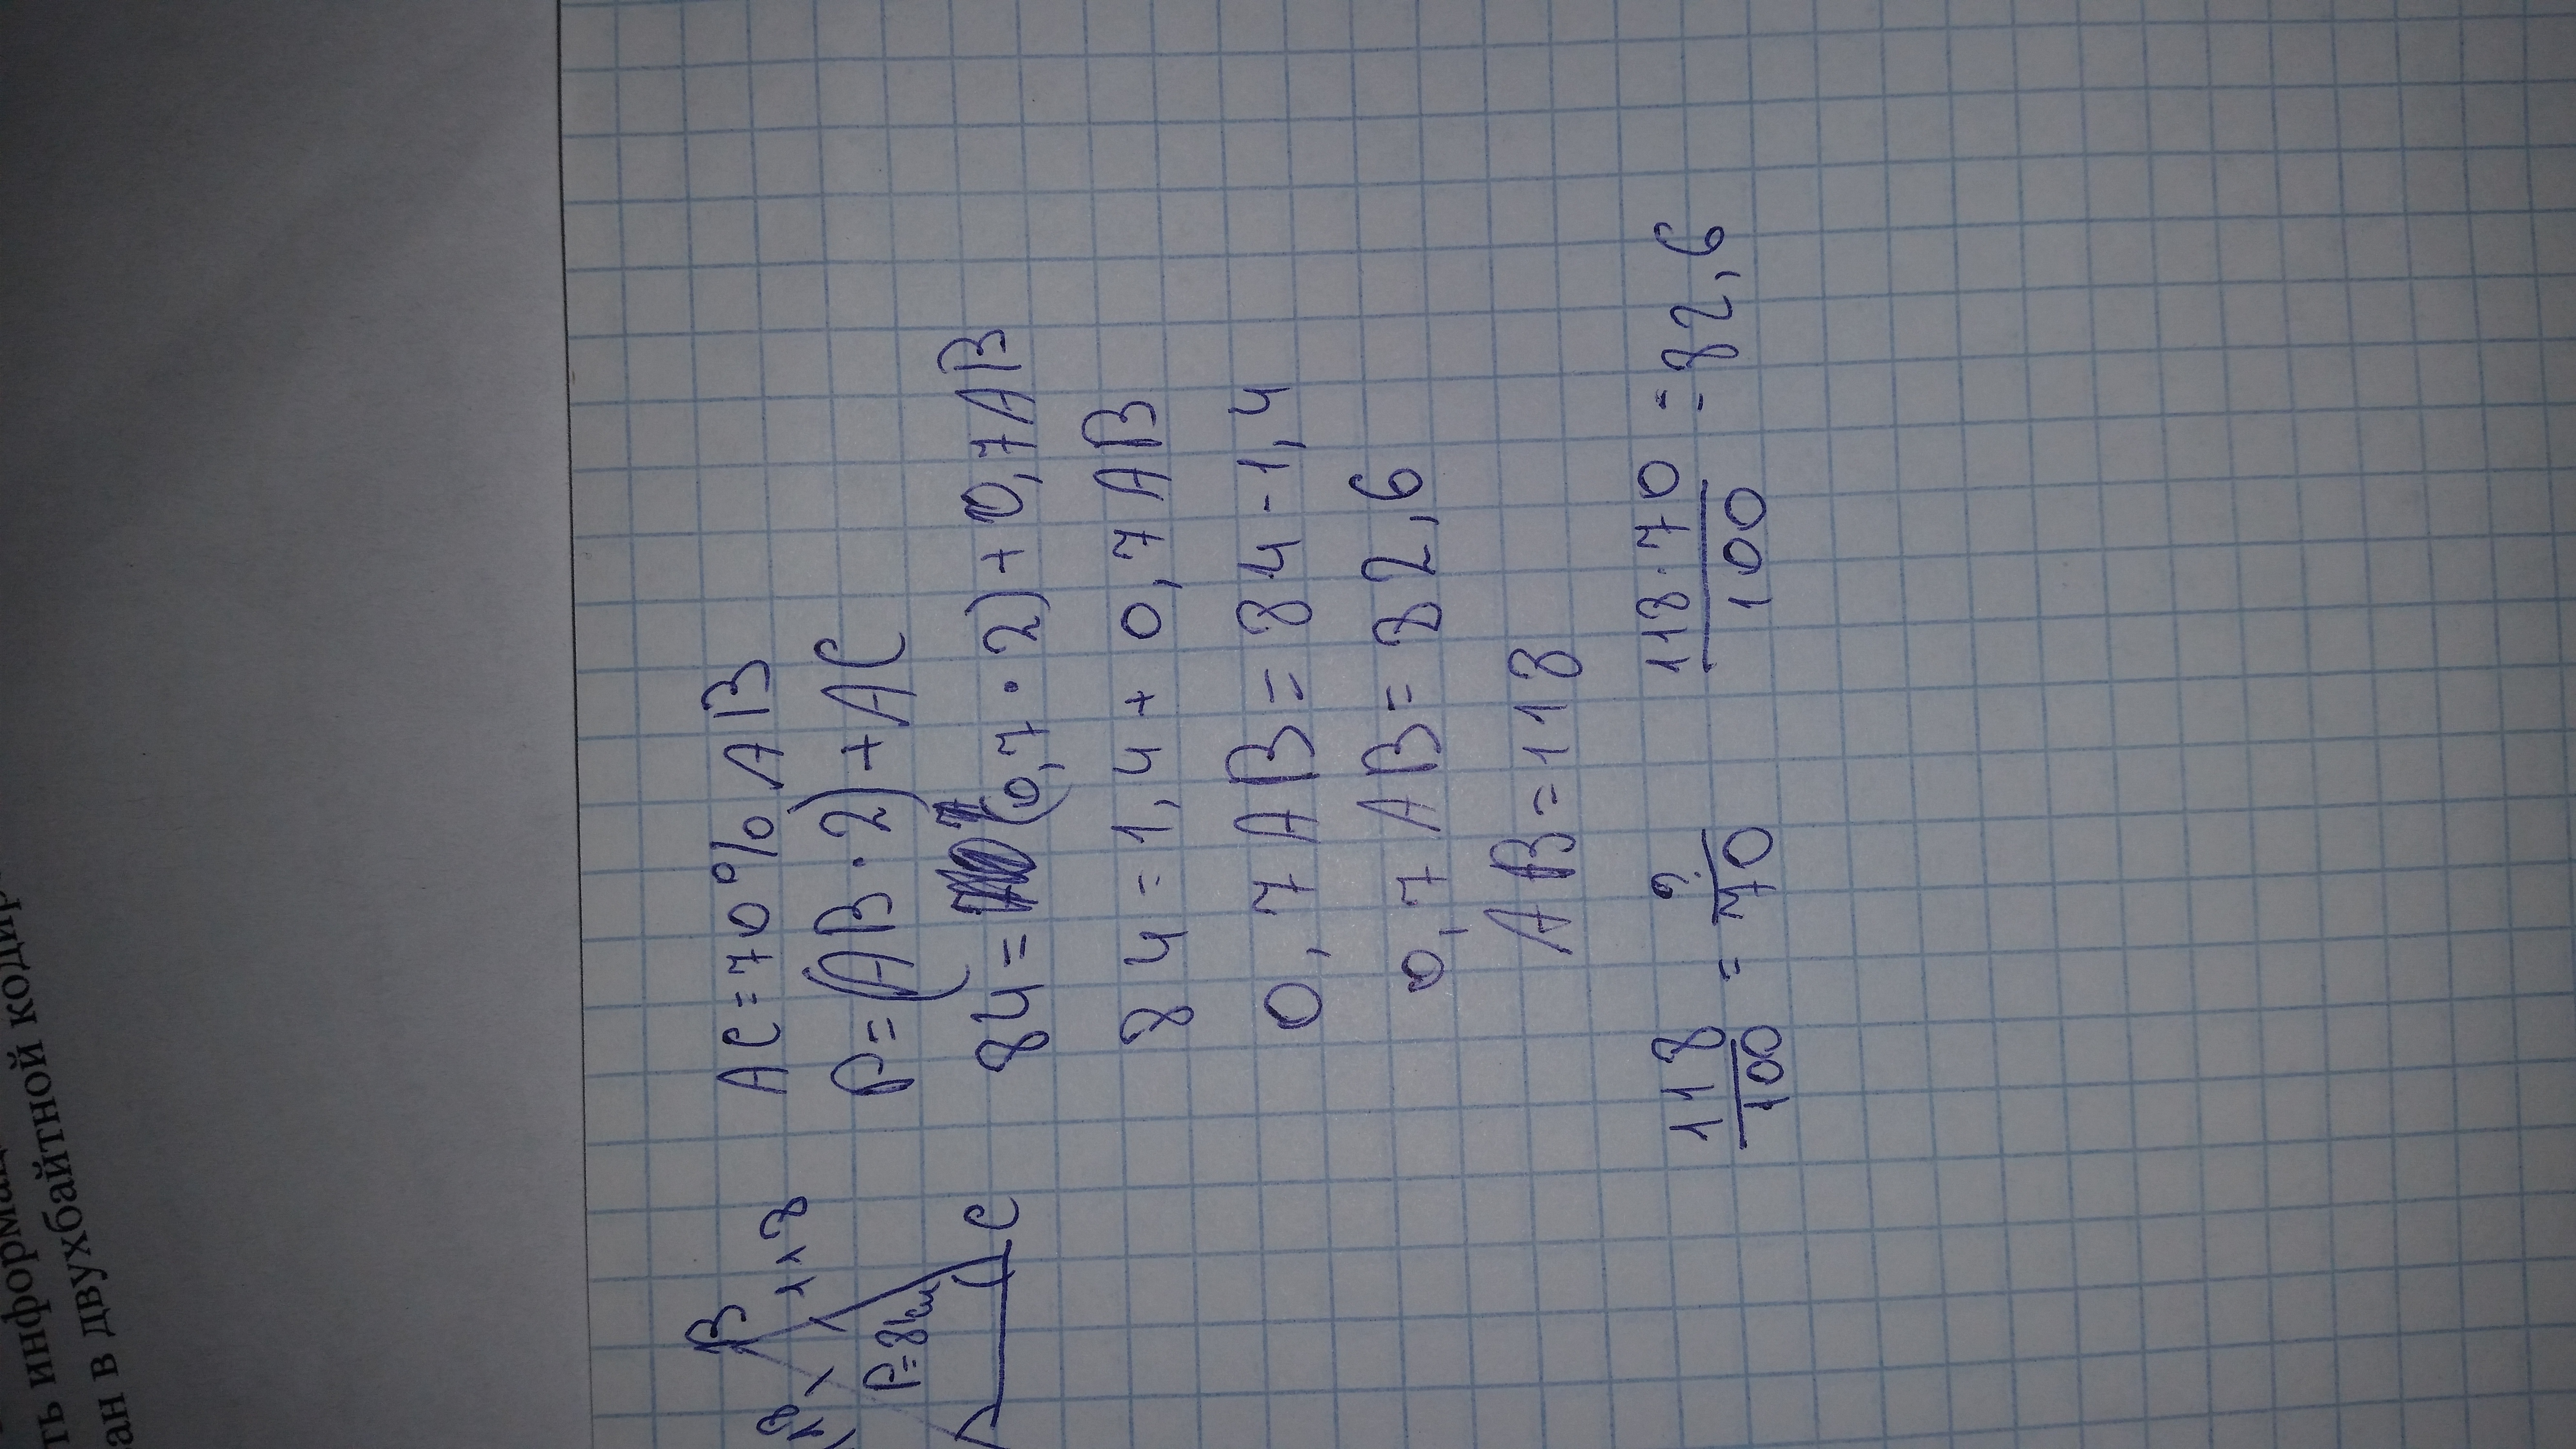 ть информац
ан в двухбайтной кодир
B
118
P=84см
C
AC=70% AB
P=(AB·2)+AC
84=(0,7·2)+0,7AB
84=1,4+0,7AB
0,7AB=84-1,4
0,7AB=82,6
AB=118
118/100 = ?/70
118·70/100 = 82,6